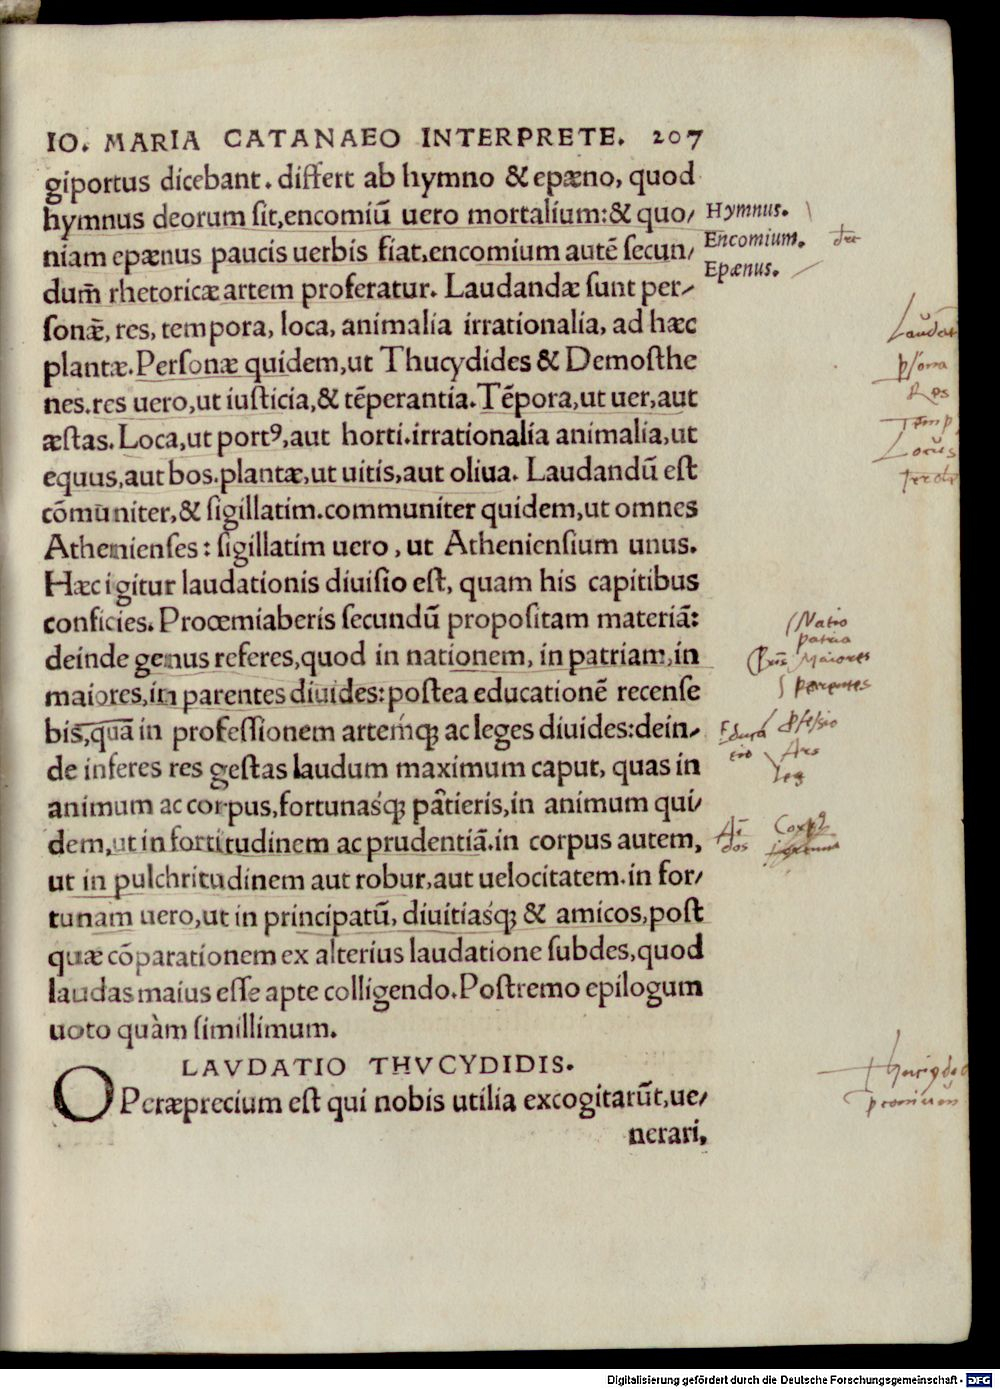 IO. MARIA CATANAEO INTERPRETE. 207
giportus dicebant. differt ab hymno & epæno, quod
hymnus deorum ſit,encomiū uero mortalium:& quo/
niam epænus paucis uerbis fiat,encomium autē ſecun/
dum̄ rhetoricæ artem proferatur. Laudandæ ſunt per/
ſonǣ, res, tempora, loca, animalia irrationalia, ad hæc
plantæ.Perſonæ quidem,ut Thucydides & Demoſthe
nes.res uero,ut iuſticia,& tēperantia.Tēpora,ut uer,aut
æſtas. Loca,ut portꝰ,aut horti.irrationalia animalia,ut
equus,aut bos.plantæ,ut uitis,aut oliua. Laudandū eſt
cōmuniter,& ſigillatim.communiter quidem,ut omnes
Athenienſes: ſigillatim uero, ut Athenienſium unus.
Hæc igitur laudationis diuiſio eſt, quam his capitibus
conficies. Proœmiaberis ſecundū propoſitam materiā:
deinde genus referes,quod in nationem, in patriam,in
maiores,in parentes diuides:poſtea educationē recenſe
bis,quā in profeſſionem artemq́ꝫ ac leges diuides:dein/
de inferes res geſtas laudum maximum caput, quas in
animum ac corpus,fortunasq́ꝫ pātieris,in animum qui/
dem,ut in fortitudinem ac prudentiā.in corpus autem,
ut in pulchritudinem aut robur,aut uelocitatem.in for/
tunam uero,ut in principatū, diuitiasq́ꝫ & amicos,poſt
quæ cōparationem ex alterius laudatione ſubdes,quod
laudas maius eſſe apte colligendo.Poſtremo epilogum
uoto quàm ſimillimum.
LAVDATIO THVCYDIDIS.
OPeræprecium eſt qui nobis utilia excogitarūt,ue/
nerari,
Hymnus.
Encomium.
Epænus.
Res
Locus
Natio
patria
Maiores
parentes
Ars
Digitalisierung gefördert durch die Deutsche Forschungsgemeinschaft - DFG